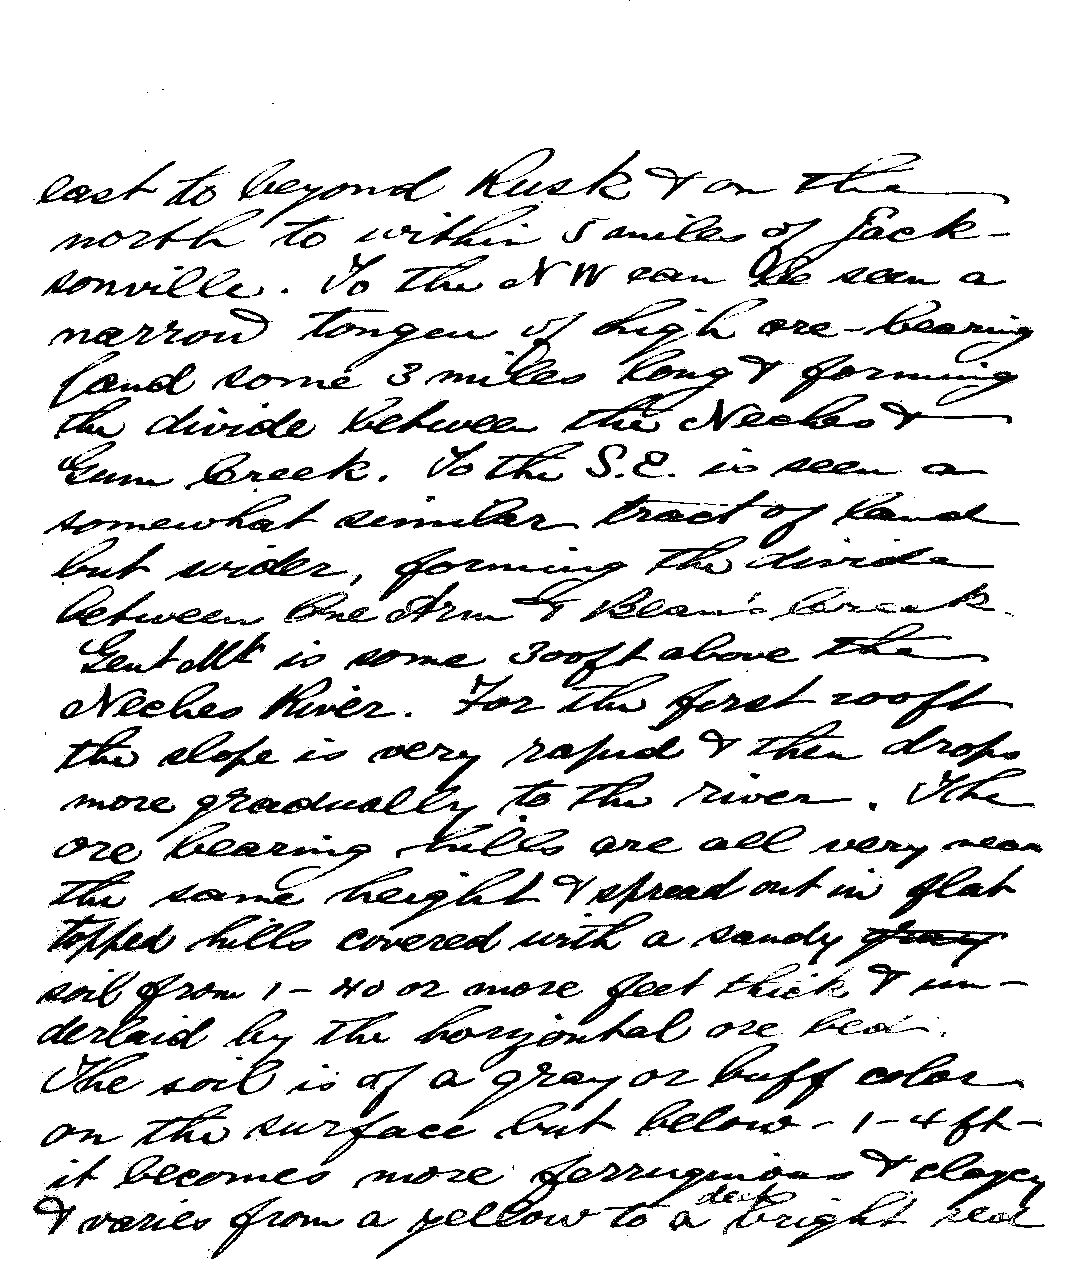 east to beyond Rusk & on the
north to within 5 miles of Jack-
sonville. To the NW can be seen a
narrow tongeu of high ore-bearing
land some 3 miles long & forming
the divide between the Neches &
Gum Creek. To the S.E. is seen a
somewhat similar tract of land
but wider, forming the divide
between One Arm & Bean's Creek.
Gent Mt is some 300ft above the
Neches River. For the first 200ft
the slope is very rapid & then drops
more gradually to the river. The
ore bearing hills are all very near
the same height & spread out in flat
topped hills covered with a sandy
soil from 1-40 or more feet thick & un-
derlaid by the horizontal ore bed.
The soil is of a gray or buff color
on the surface but below - 1-4 ft -
it becomes more ferruginous & clayey
& varies from a yellow to a deep bright red